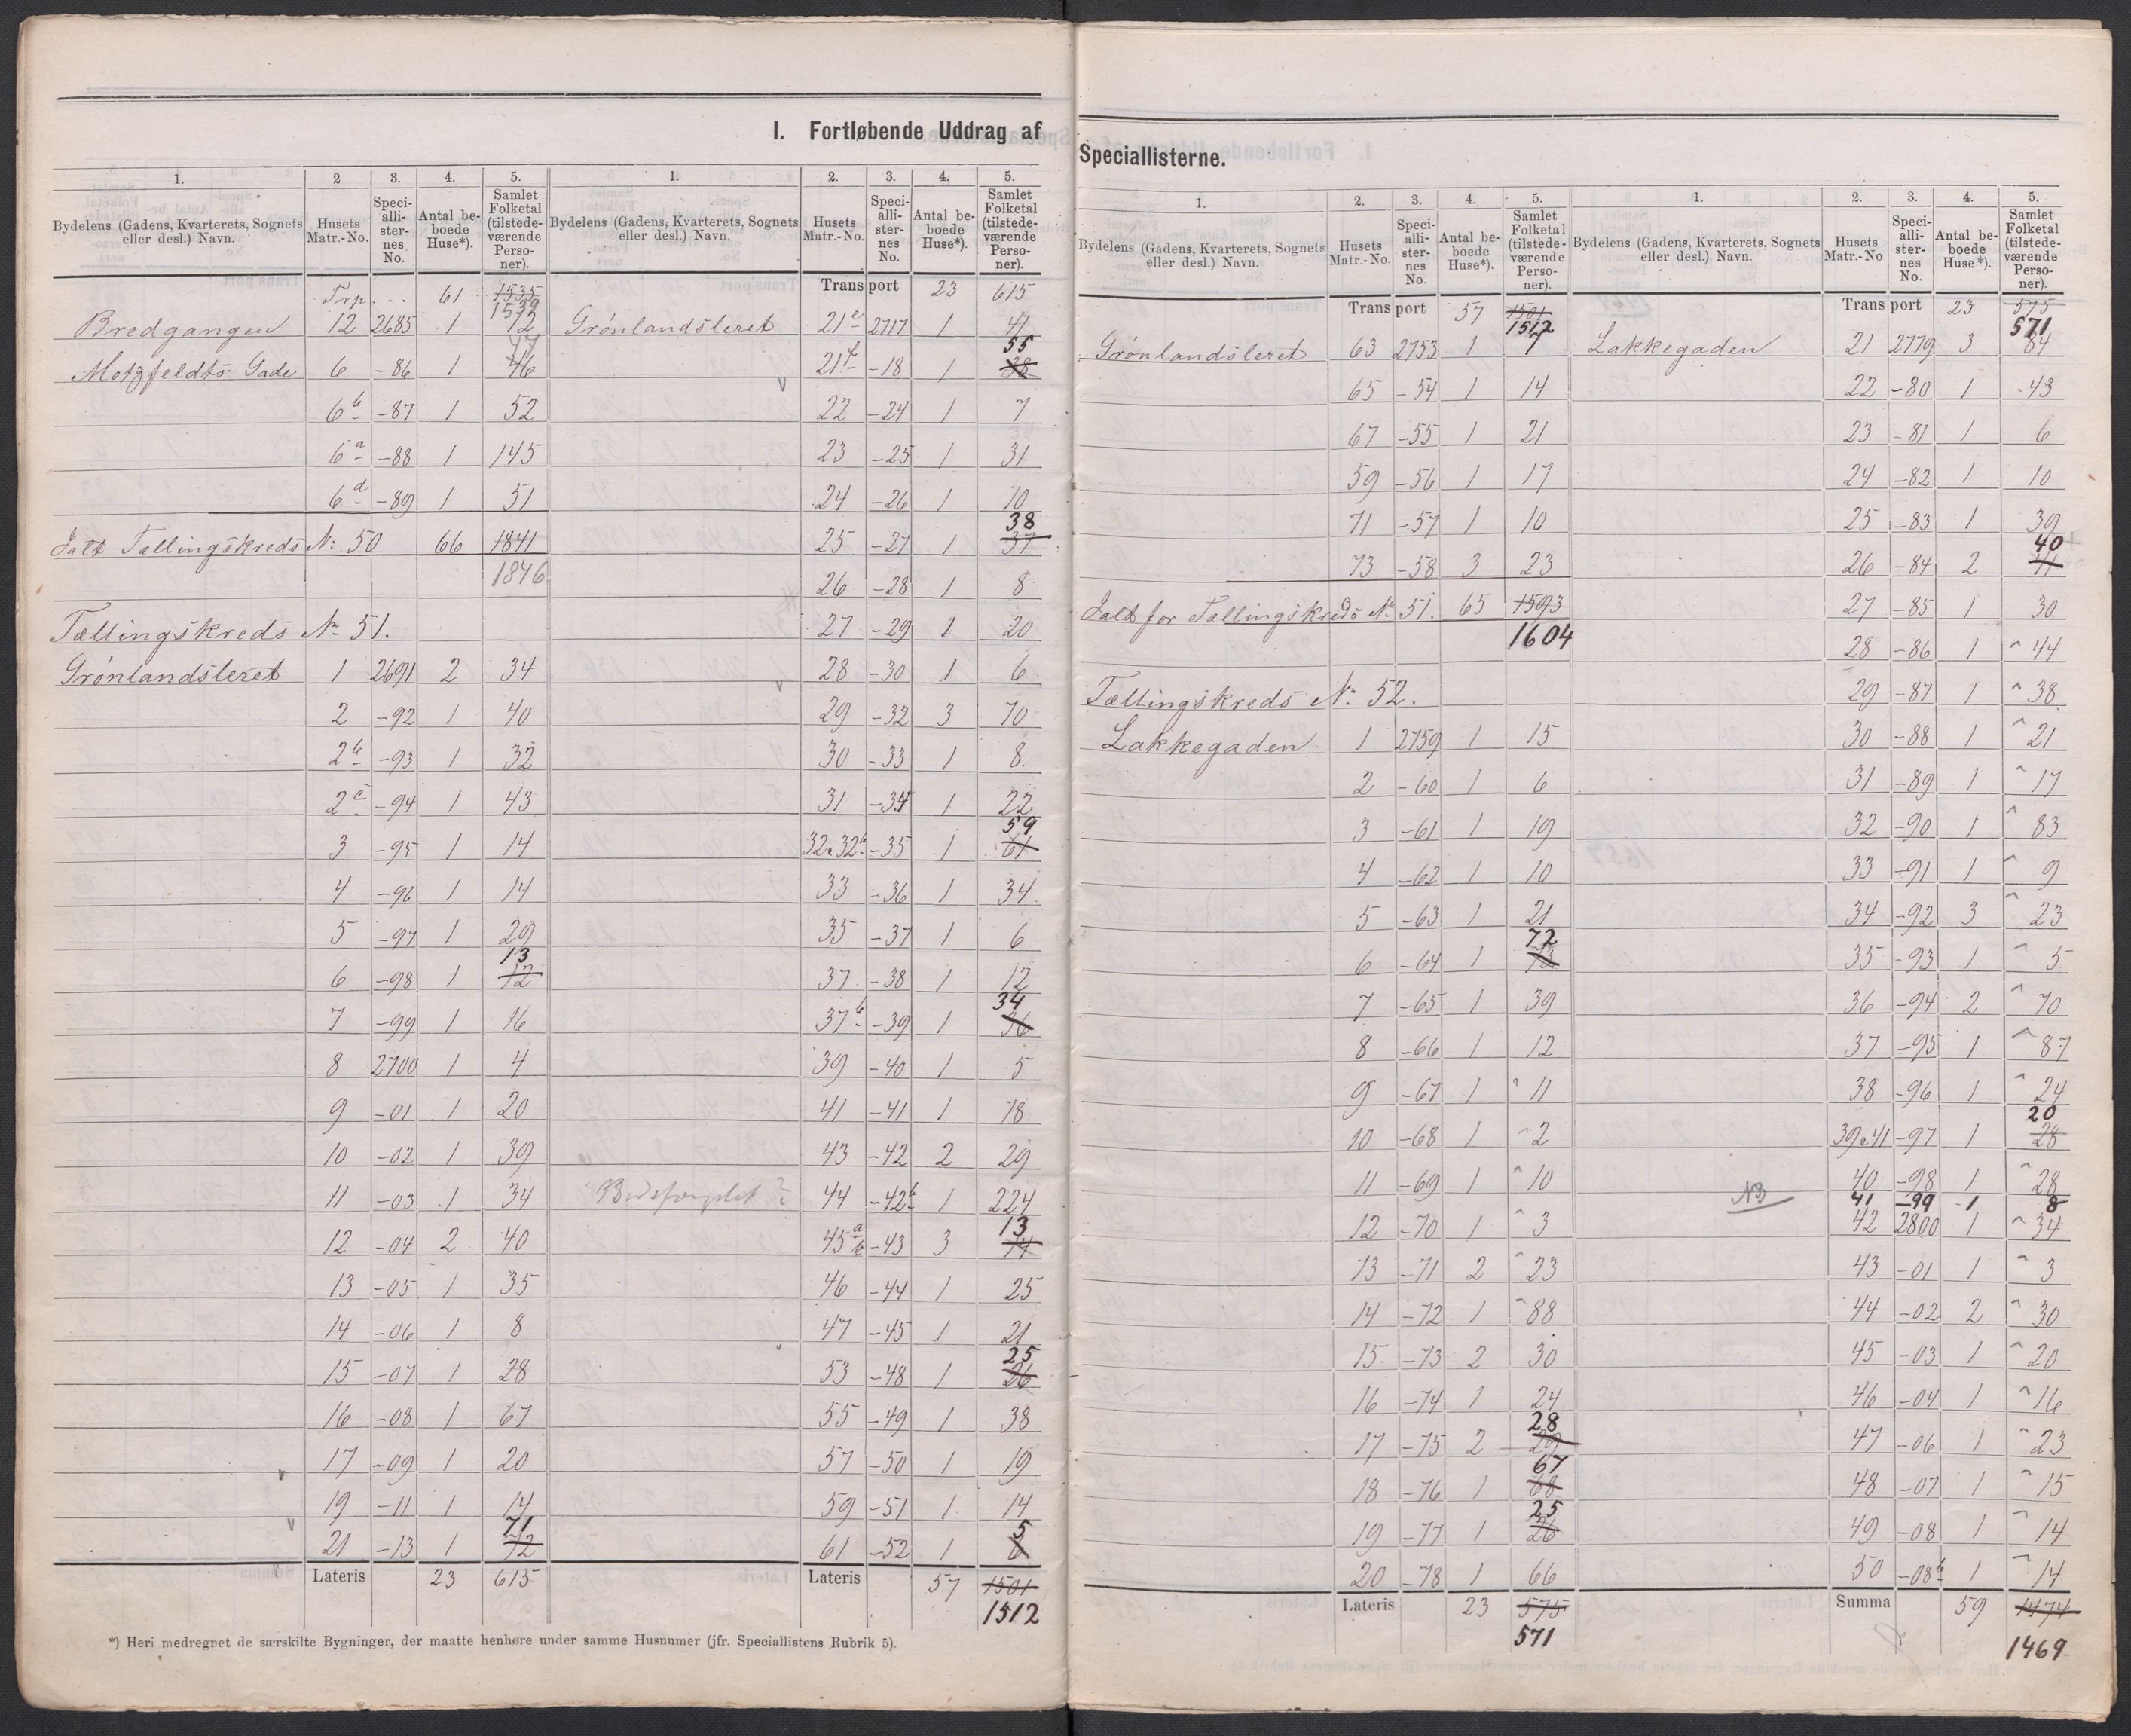 I. Fortløbende Uddrag af
1. 2 3. 4. 5.
Bydelens (Gadens, Kvarterets, Sognets eller desl.) Navn. Husets Matr.-No. Speciallisternes No. Antal beboede Huse*). Samlet Folketal (tilstedeværende Personer).
Trp. . . . 61 1535 1539
Bredgangen 12 2685 1 12
Motzfeldts Gade 6 -86 1 46 47
6b -87 1 52
6a -88 1 145
6d -89 1 51
Ialt Tællingskreds No 50 66 1841
1846
Tællingskreds No 51.
Grønlandsleret 1 2691 2 34
2 -92 1 40
2b -93 1 32
2c -94 1 43
3 -95 1 14
4 -96 1 14
5 -97 1 29
6 -98 1 12 13
7 -99 1 16
8 2700 1 4
9 -01 1 20
10 -02 1 39
11 -03 1 34
12 -04 2 40
13 -05 1 35
14 -06 1 8
15 -07 1 28
16 -08 1 67
17 -09 1 20
19 -11 1 14
21 -13 1 72 71
Lateris 23 615
1. 2. 3. 4. 5.
Bydelens (Gadens, Kvarterets, Sognets eller desl.) Navn. Husets Matr.-No. Speciallisternes No. Antal beboede Huse*). Samlet Folketal (tilstedeværende Personer).
Transport 23 615
Grønlandsleret 21e 2717 1 41
21f -18 1 38 55
22 -24 1 7
23 -25 1 31
24 -26 1 10
25 -27 1 37 38
26 -28 1 8
27 -29 1 20
28 -30 1 6
29 -32 3 70
30 -33 1 8.
31 -34 1 22
32 & 32b -35 1 61 59
33 -36 1 34
35 -37 1 6
37 -38 1 12
37b -39 1 36 34
39 -40 1 5
41 -41 1 18
43 -42 2 29
44 -42b 1 224
45a b -43 3 14 13
46 -44 1 25
47 -45 1 21
53 -48 1 26 25
55 -49 1 38
57 -50 1 19
59 -51 1 14
61 -52 1 6 5
Lateris 57 1501
1512
*) Heri medregnet de særskilte Bygninger, der maatte henhøre under samme Husnumer (jfr. Speciallistens Rubrik 5).
Speciallisterne.
1. 2. 3. 4. 5.
Bydelens (Gadens, Kvarterets, Sognets eller desl.) Navn. Husets Matr.-No. Speciallisternes No. Antal beboede Huse*). Samlet Folketal (tilstedeværende Personer).
Transport 57 1501 1512
Grønlandsleret 63 2753 1 7
65 -54 1 14
67 -55 1 21
59 -56 1 17
71 -57 1 10
73 -58 3 23
Ialt for Tællingskreds No 51. 65 1593
1604
Tællingskreds No 52.
Lakkegaden 1 2759 1 15
2 -60 1 6
3 -61 1 19
4 -62 1 10
5 -63 1 21
6 -64 1 72
7 -65 1 39
8 -66 1 12
9 -67 1 11
10 -68 1 2
11 -69 1 10
12 -70 1 3
13 -71 2 23
14 -72 1 88
15 -73 2 30
16 -74 1 24
17 -75 2 29 28
18 -76 1 68 67
19 -77 1 26 25
20 -78 1 66
Lateris 23 575
571
1. 2. 3. 4. 5.
Bydelens (Gadens, Kvarterets, Sognets eller desl.) Navn. Husets Matr.-No Speciallisternes No. Antal beboede Huse*). Samlet Folketal (tilstedeværende Personer).
Transport 23 575 571
Lakkegaden 21 2779 3 84
22 -80 1 43
23 -81 1 6
24 -82 1 10
25 -83 1 39
26 -84 2 41 40
27 -85 1 30
28 -86 1 44
29 -87 1 38
30 -88 1 21
31 -89 1 17
32 -90 1 83
33 -91 1 9
34 -92 3 23
35 -93 1 5
36 -94 2 70
37 -95 1 87
38 -96 1 24
39 & 41 -97 1 28 20
40 -98 1 28
NB 41 -99 1 8
42 2800 1 34
43 -01 1 3
44 -02 2 30
45 -03 1 20
46 -04 1 16
47 -06 1 23
48 -07 1 15
49 -08 1 14
50 -08b 1 14
Summa 59 1474
1469